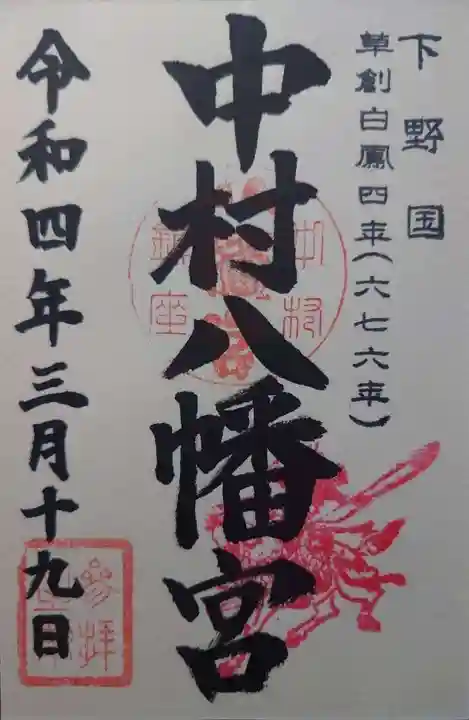 下野国
草創白鳳四年(六七六年)
中村八幡宮
令和四年三月十九日
中村
鎮座
参拝